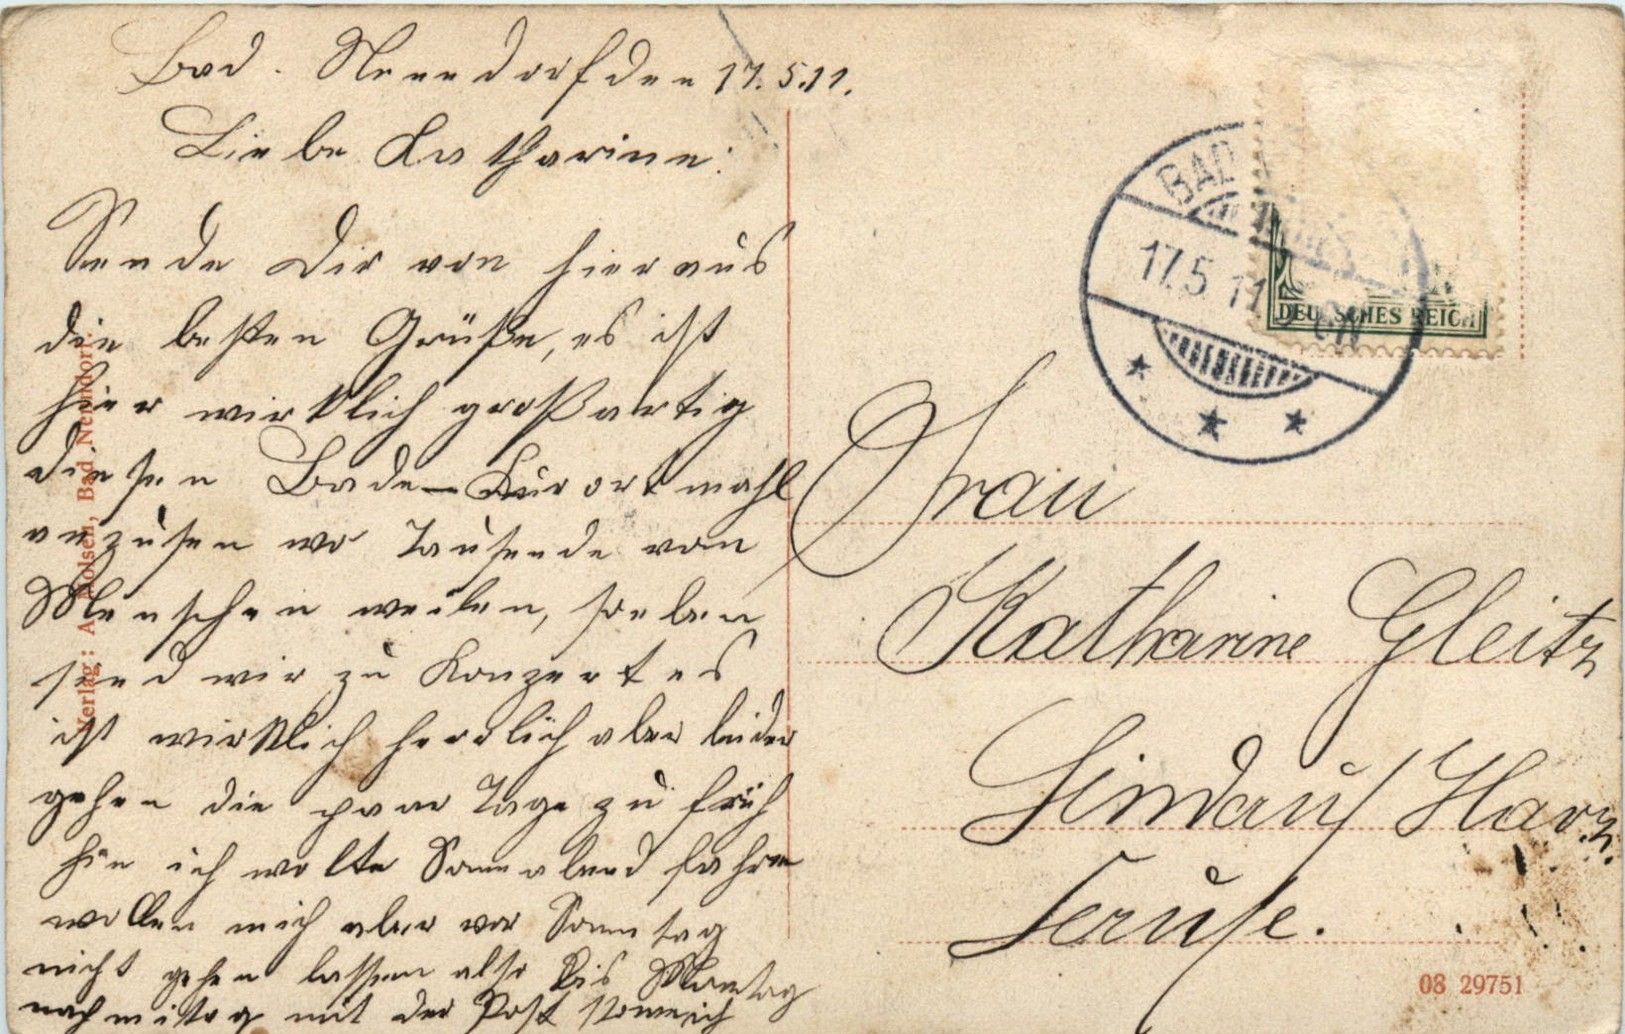 Bad. Nenndorf den 17.5.11.
Liebe Katharine:
Sende Dir von hier aus
die besten Grüße, es ist
hier wirklich großartig
diesen Bade-Kurort mahl
anzusen wo Tausende von
Menschen weilen, soeben
send wir zu Konzert es
ist wirklich herrlich aber leider
gehen die paar Tage zu früh
hin ich wollte Sonnabend fahren
wollen mich aber vor Sonntag
nicht gehen lassen also bis Montag
nachmitag mit der Post
BAD
17.5.11
DEUTSCHES REICH
Frau
Katharine Gleitz
Lindau/Harz.
Verlag: A. Dolsen, Bad Nenndorf.
08 29751